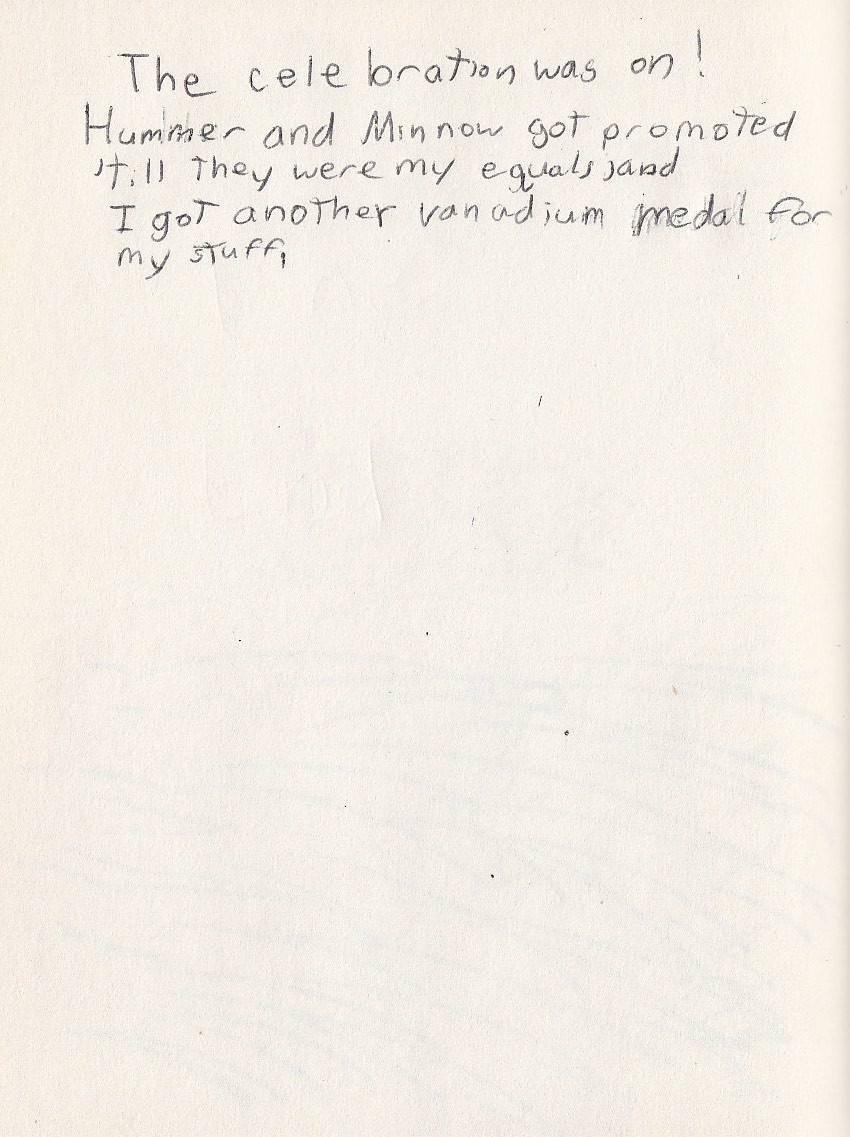 The celebration was on!
Hummer and Minnow got promoted
'till they were my equals, and
I got another vanadium medal for
my stuff.